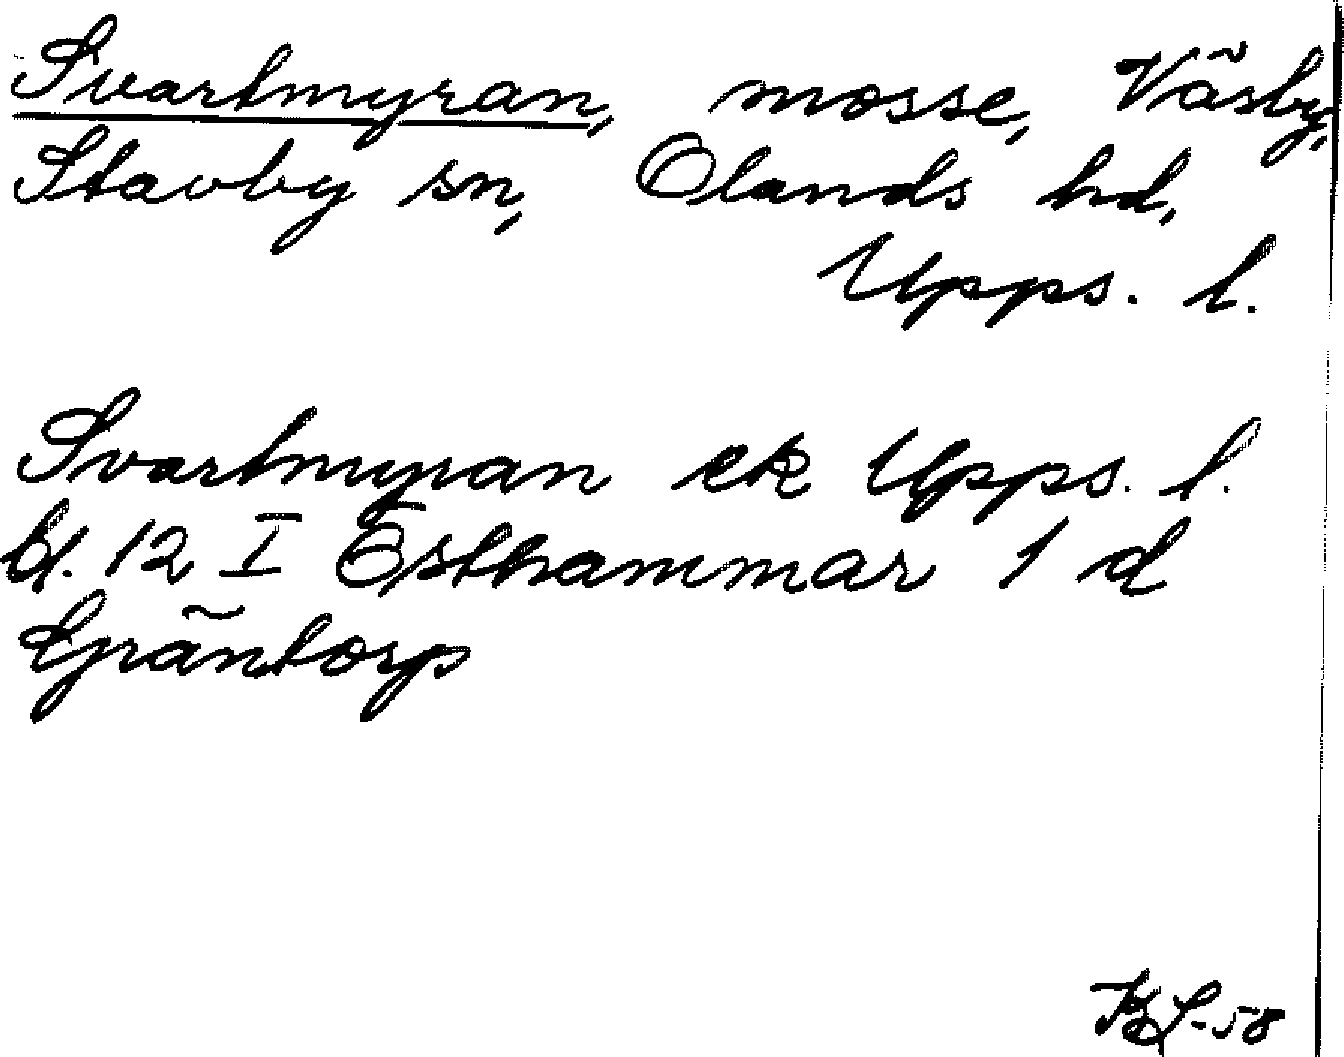 Svartmyran, mosse, Väsby,
Stavby sn, Olands hd,
Upps. l.
Svartmyran ek Upps. l.
bl. 12 I Östhammar 1 d
Gräntorp
-58